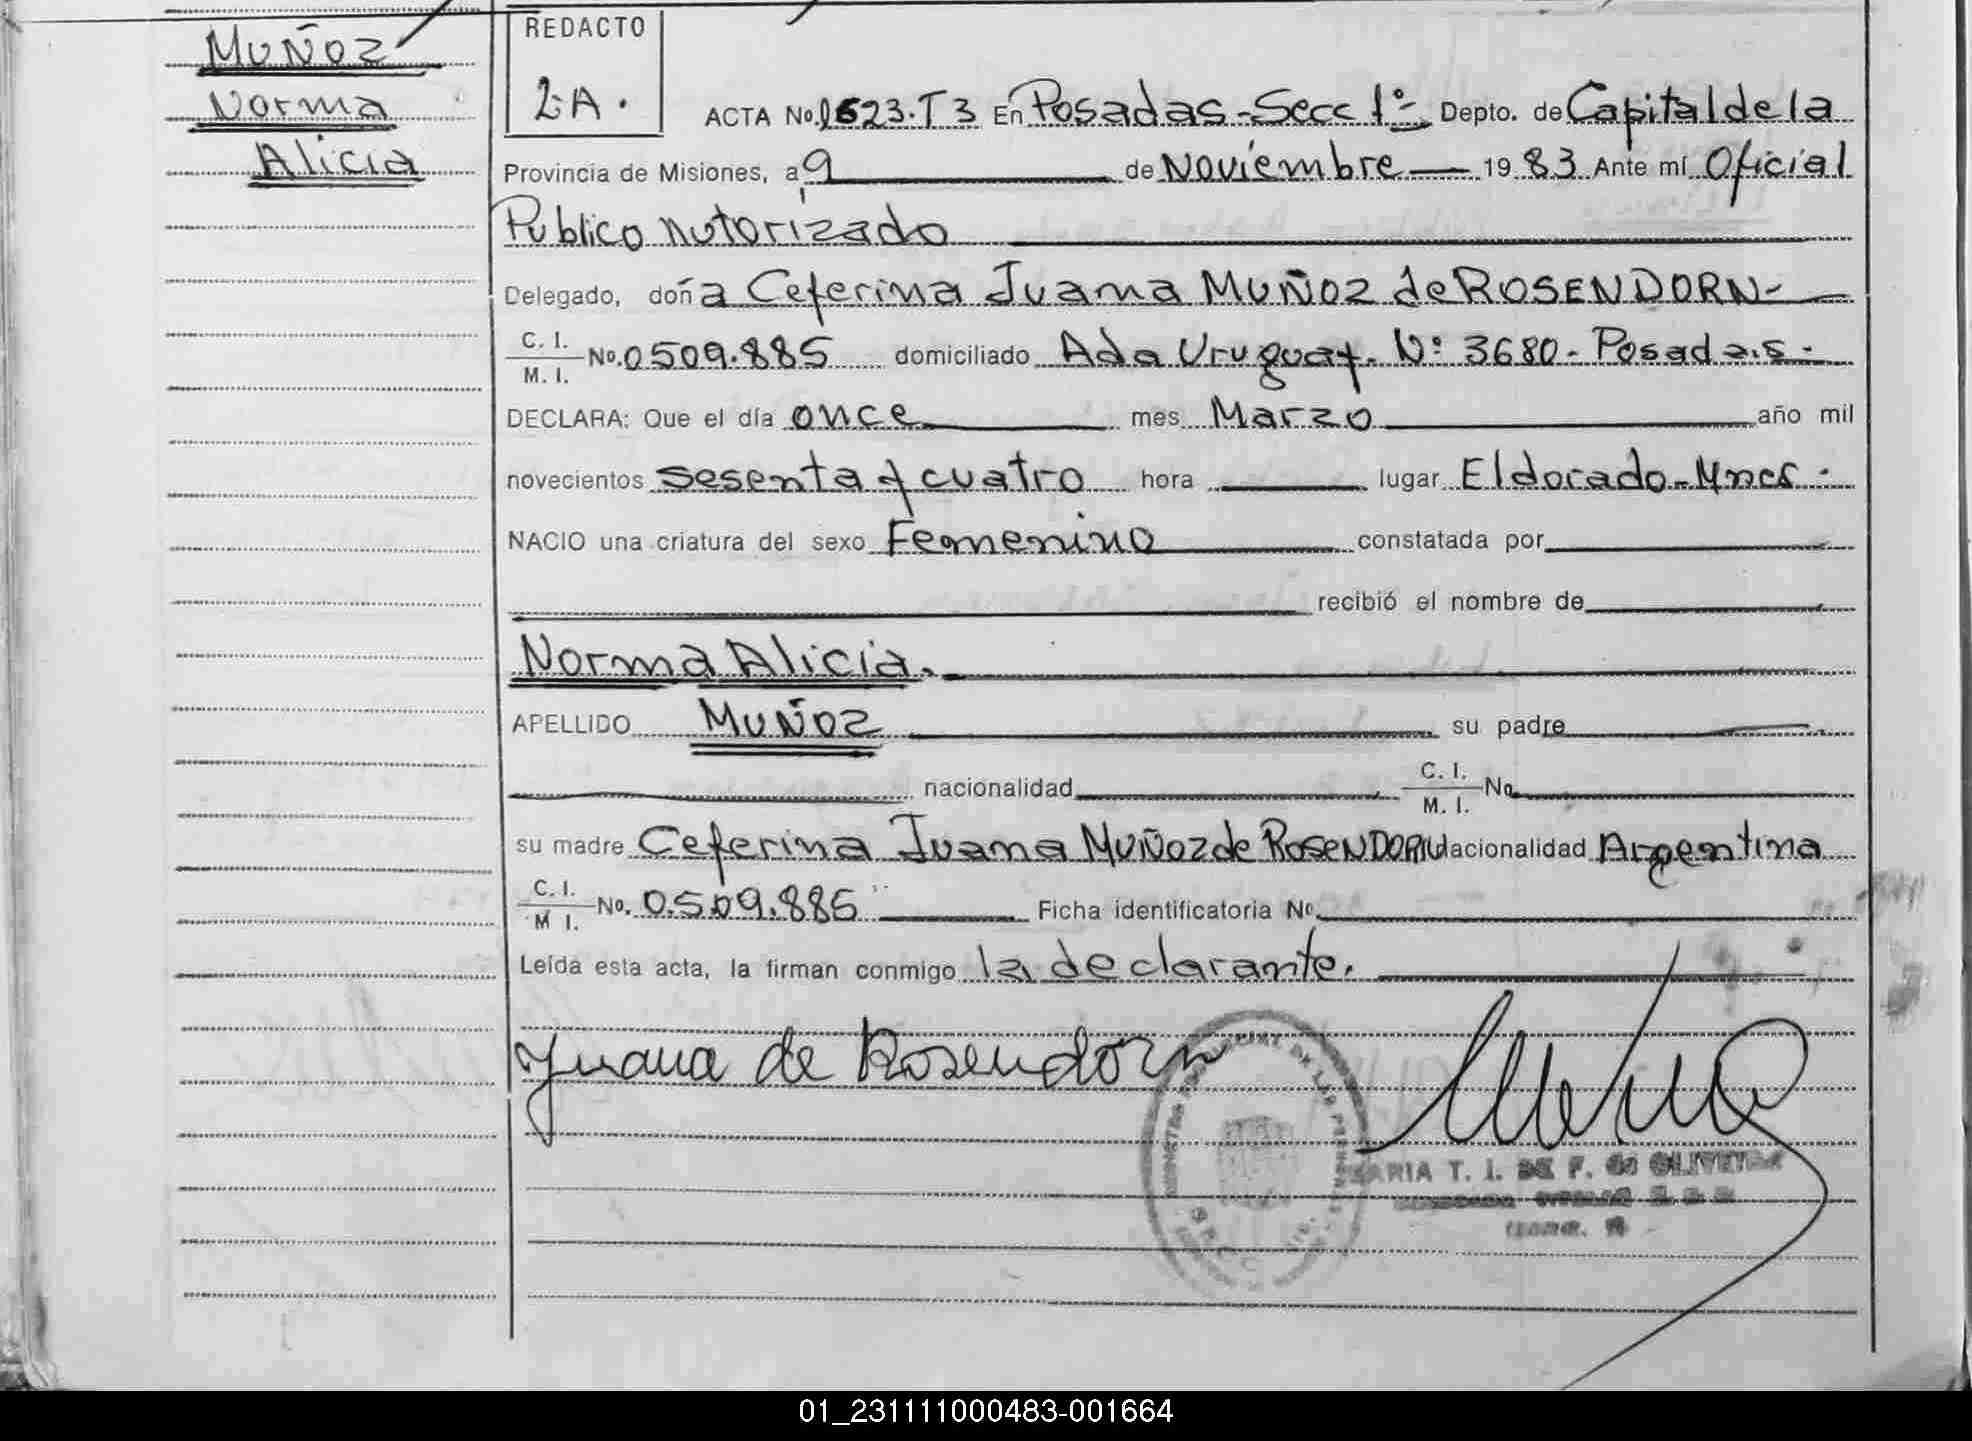 MUÑOZ
Norma
Alicia
REDACTO
2-A.
ACTA No. 1623. T3 En Posadas - Secc 1° - Depto. de Capital de la
Provincia de Misiones, a 9 de Noviembre — 19 83 Ante mí Oficial
Publico Autorizado
Delegado, doña Ceferina Juana MUÑOZ de ROSENDORN-
C. I.
M. I. No. 0509.885 domiciliado Ada Uruguay. N° 3680 - Posadas -
DECLARA: Que el día once mes Marzo año mil
novecientos sesenta y cuatro hora — lugar Eldorado - Mnes -
NACIO una criatura del sexo Femenino constatada por
recibió el nombre de
Norma Alicia.
APELLIDO MUÑOZ su padre
nacionalidad C. I.
M. I. No.
su madre Ceferina Juana MUÑOZ de ROSENDORN nacionalidad Argentina
C. I.
M I. No. 0.509.885 Ficha identificatoria No.
Leída esta acta, la firman conmigo la declarante.
Juana de Rosendorn
MARIA T. I. DE F. de OLIVEIRA
01_231111000483-001664